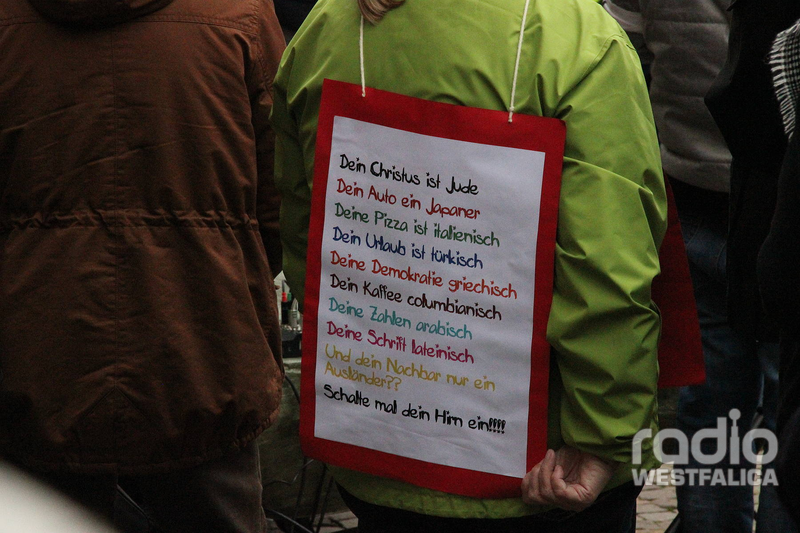 Dein Christus ist Jude
Dein Auto ein Japaner
Deine Pizza ist italienisch
Dein Urlaub ist türkisch
Deine Demokratie griechisch
Dein Kaffee columbianisch
Deine Zahlen arabisch
Deine Schrift lateinisch
Und dein Nachbar nur ein
Ausländer??
Schalte mal dein Hirn ein!!!!
radio
WESTFALICA